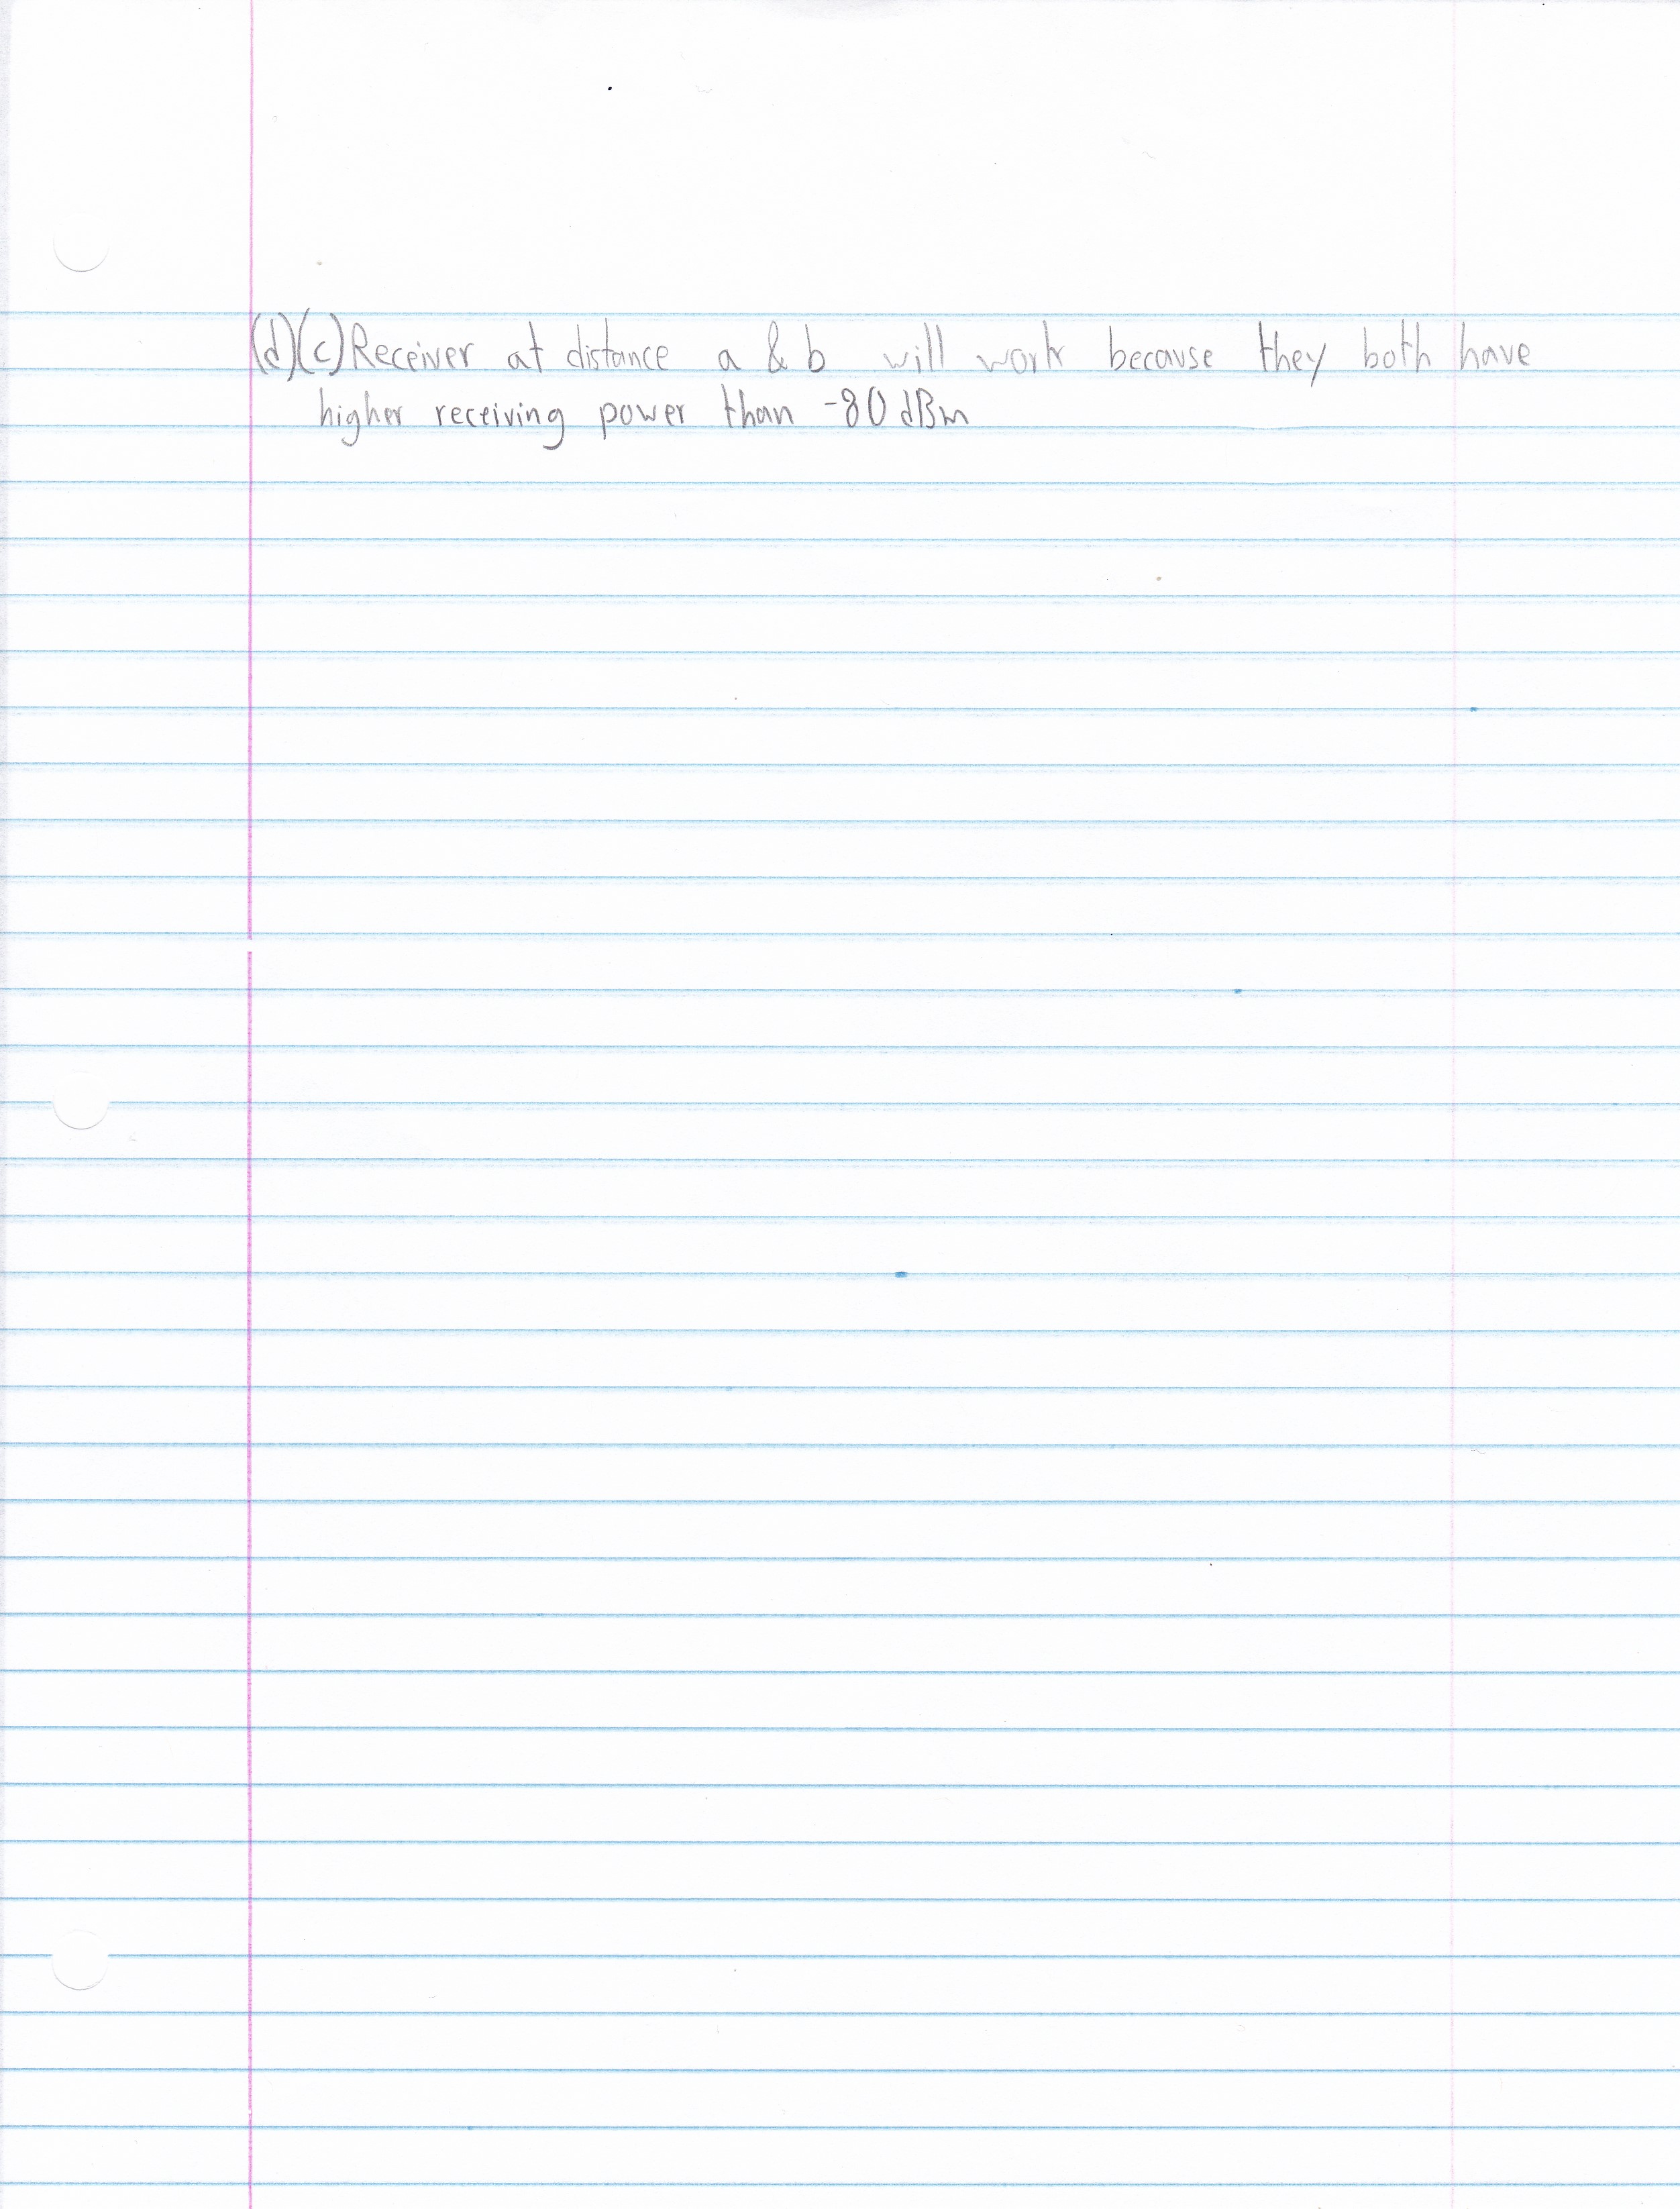 (d)(c) Receiver at distance a & b will work because they both have
higher receiving power than -80 dBm